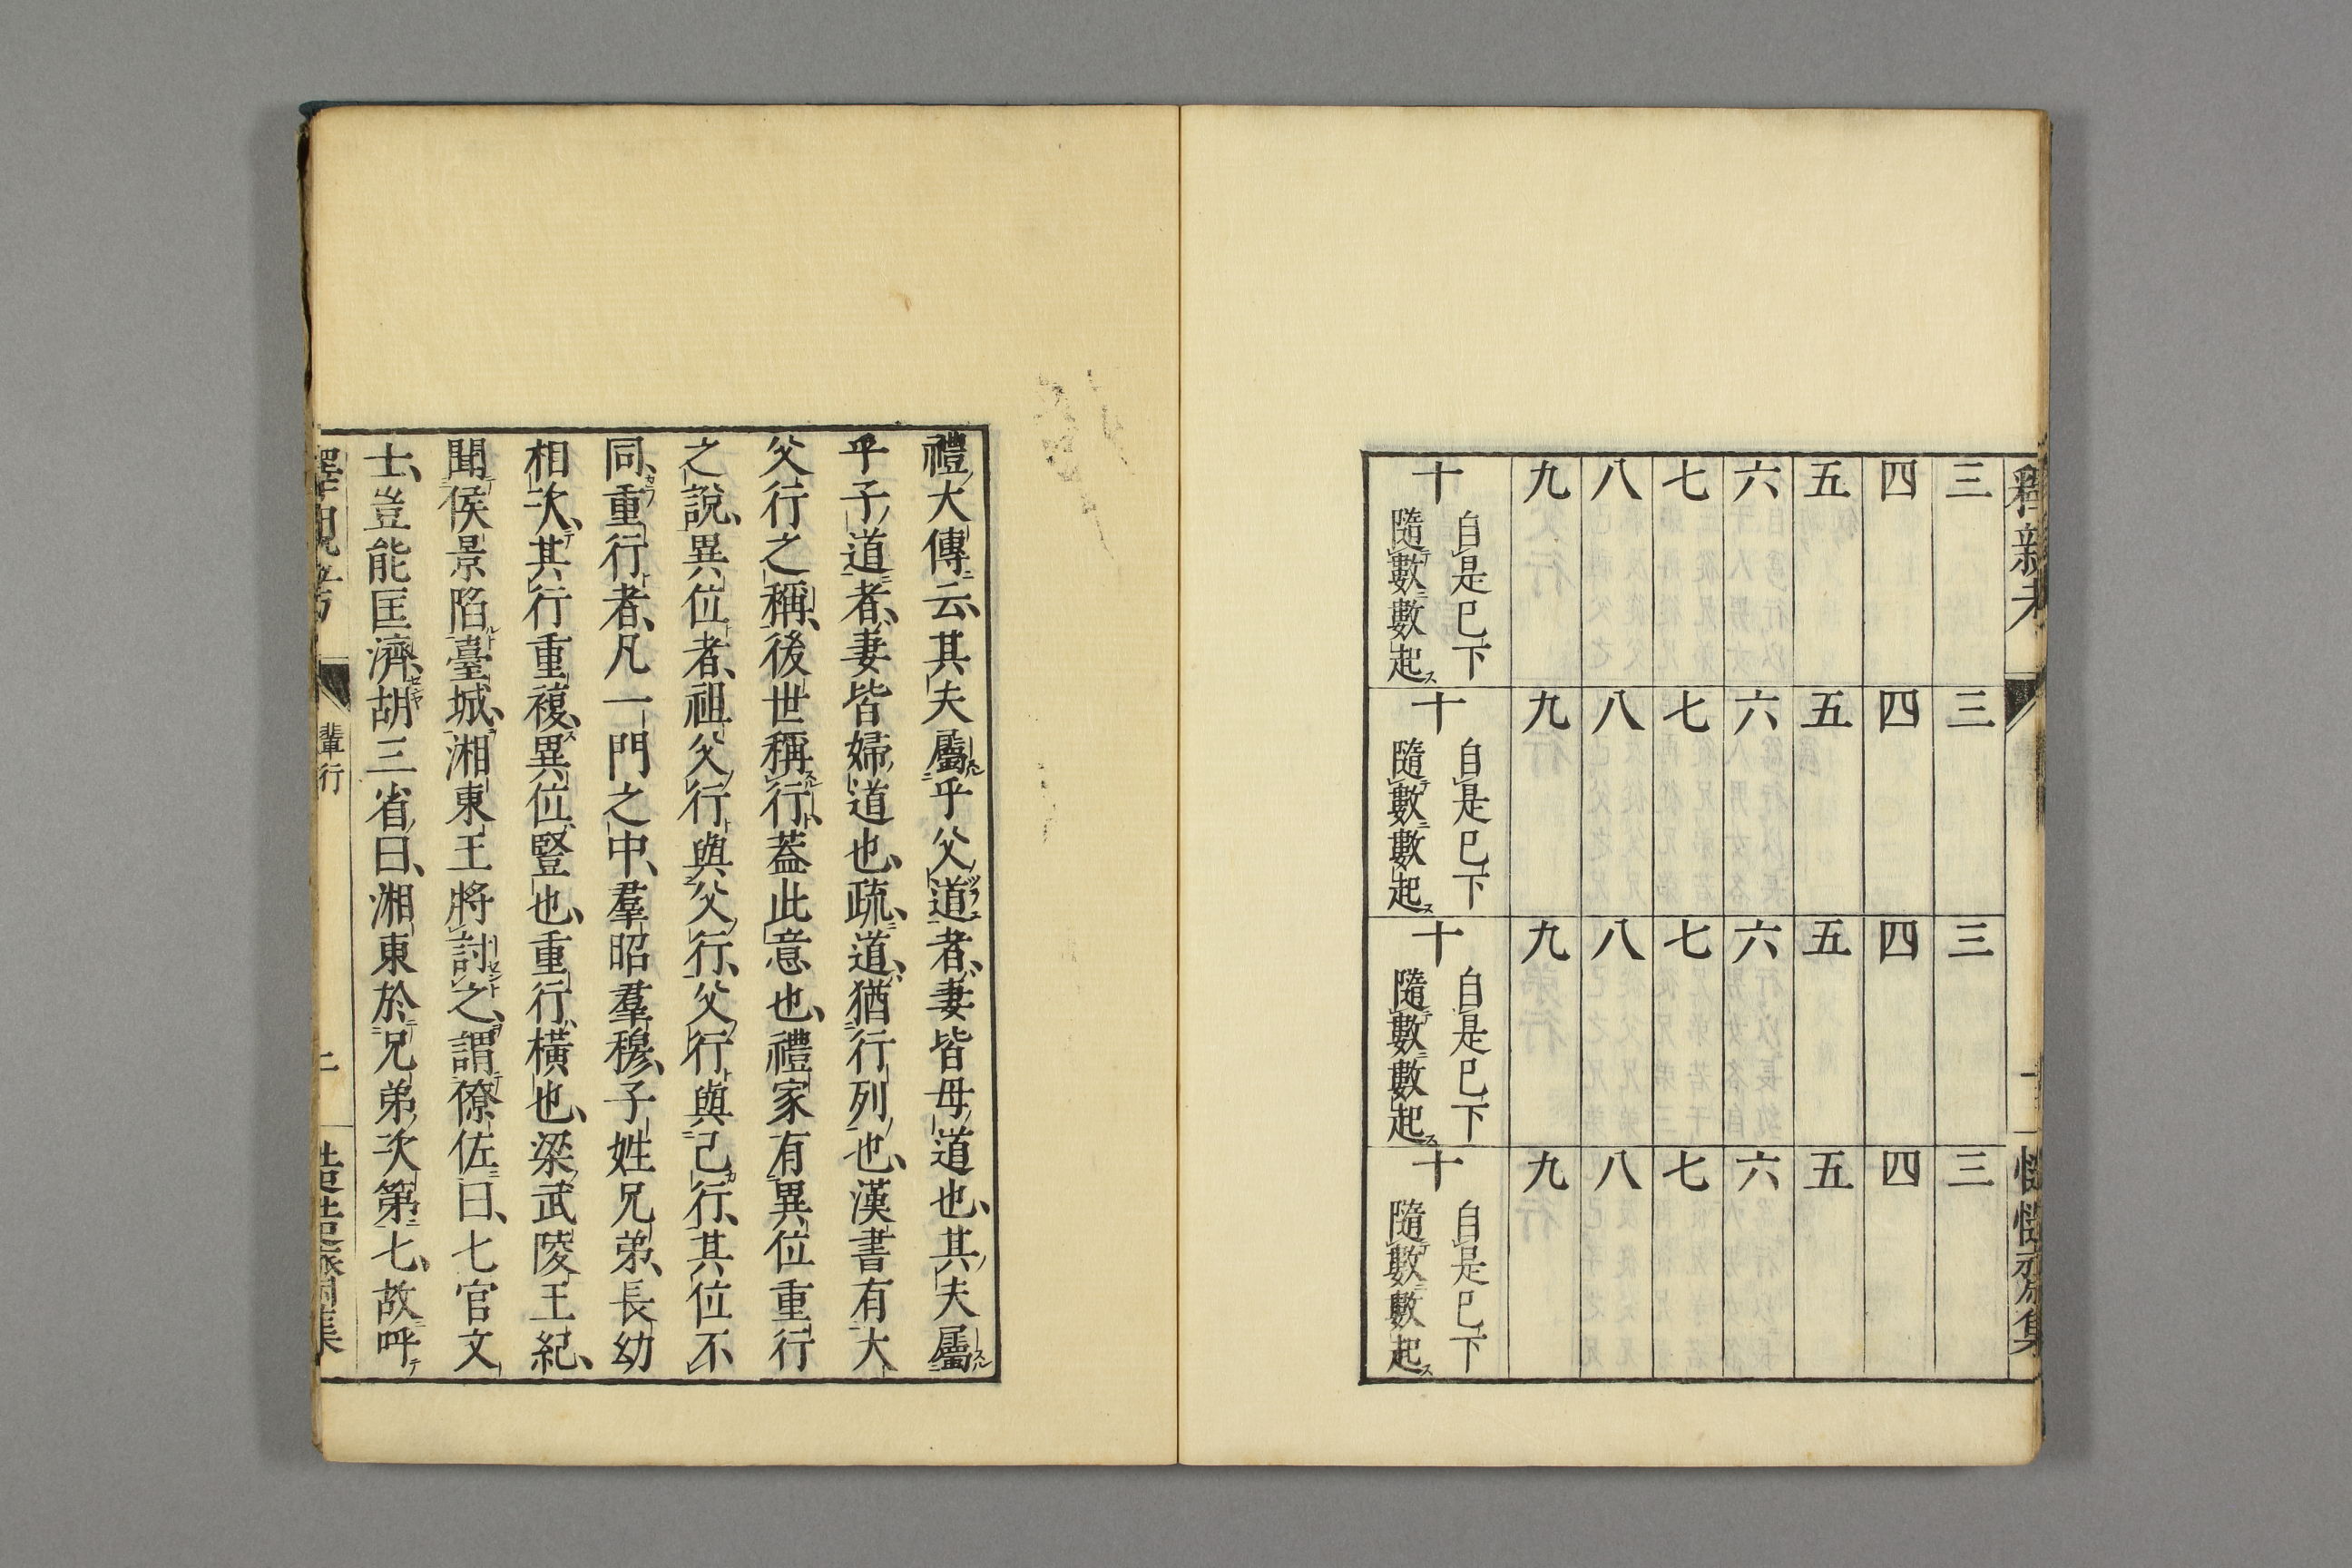 釋親考
三 三 三 三
四 四 四 四
五 五 五 五
六 六 六 六
七 七 七 七
八 八 八 八
九 九 九 九
十 自是已下隨數數起 十 自是已下隨數數起 十 自是已下隨數數起 十 自是已下隨數數起
禮大傳云、其夫屬乎父道者、妻皆母道也、其夫屬
乎子道者、妻皆婦道也、疏、道、猶行列也、漢書有大
父行之稱、後世稱行、蓋此意也、禮家有異位重行
之說、異位者、祖父行與父行、父行與己行、其位不
同、重行者、凡一門之中、羣昭羣穆、子姓兄弟、長幼
相次、其行重複、異位豎也、重行橫也、梁武陵王紀、
聞侯景陷臺城、湘東王將討之、謂僚佐曰、七官文
士、豈能匡濟、胡三省曰、湘東於兄弟次第七、故呼
釋親考 輩行